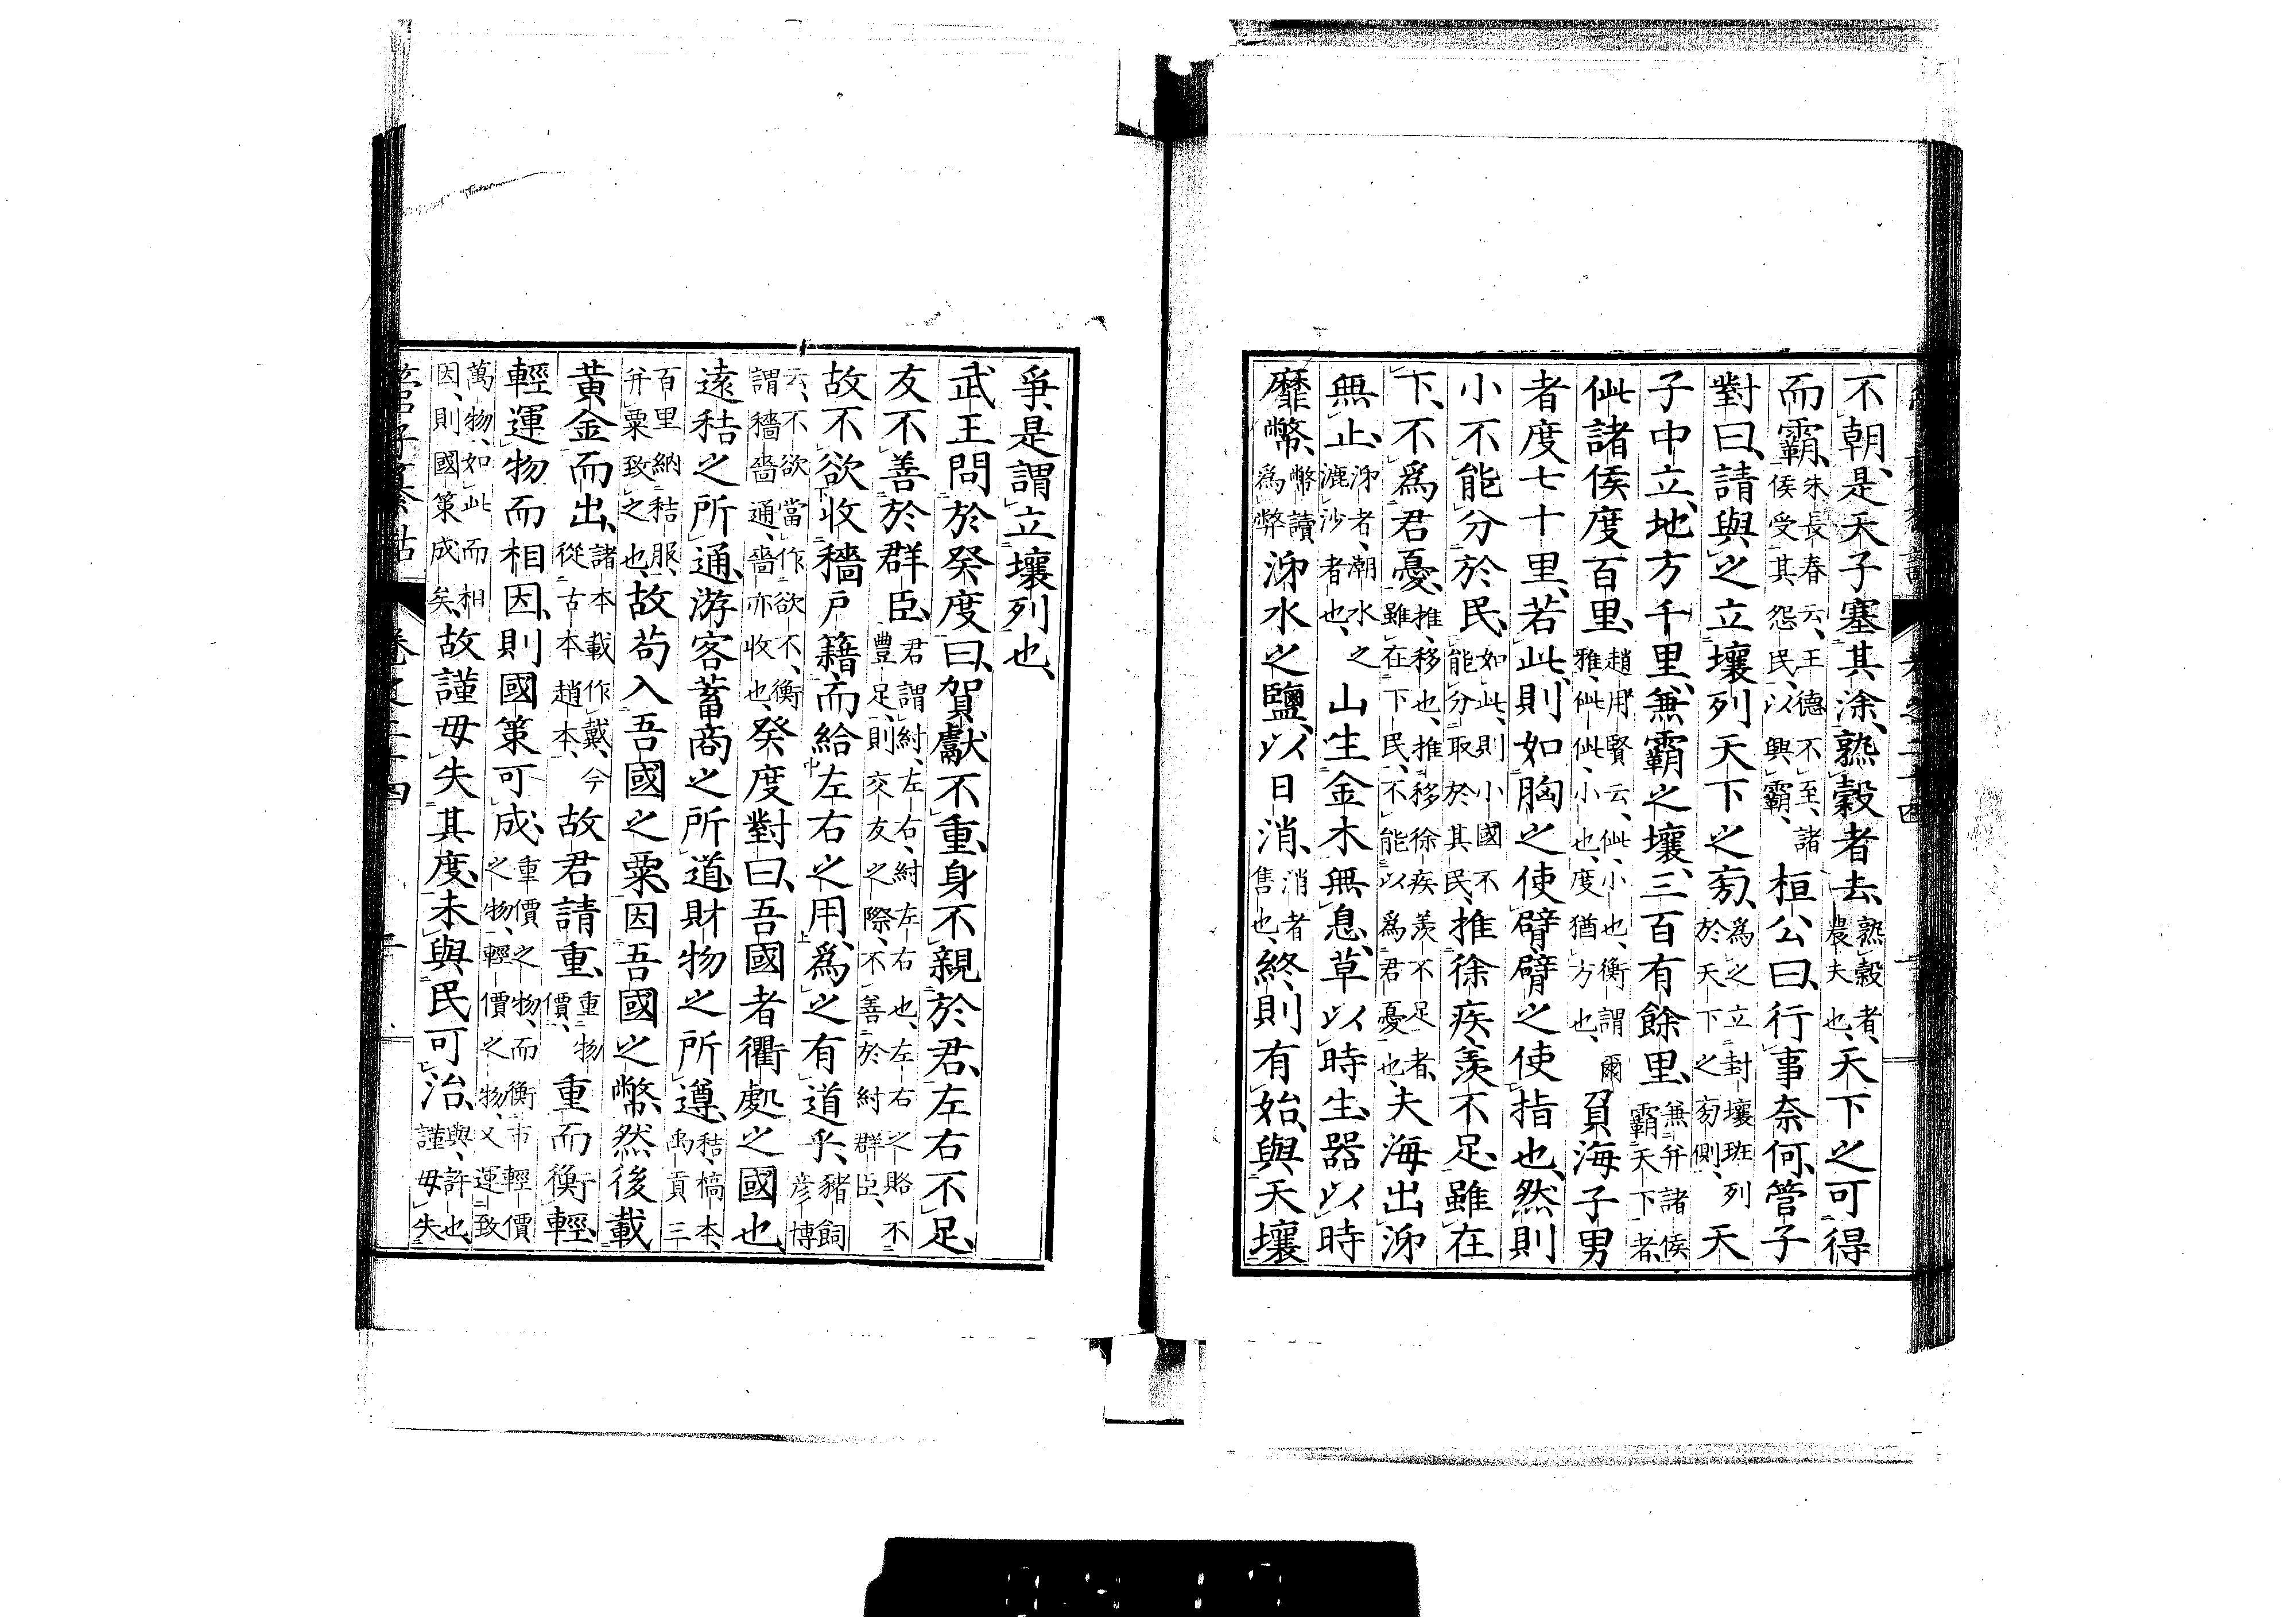 不朝、是天子塞其涂、熟穀者去、熟穀者、農夫也、天下之可得
而霸、朱長春云、王德不至、諸侯受其怨民、以興霸、桓公曰、行事奈何、管子
對曰、請與之立壤列天下之旁、爲之立封壤班列於天下之旁側、天
子中立、地方千里、兼霸之壤、三百有餘里、兼并諸侯霸天下者、
佌諸侯度百里、趙用賢云、佌小也、衡謂爾雅、佌佌、小也、度猶方也、負海子男
者度七十里、若此、則如胸之使臂、臂之使指也、然則
小不能分於民、如此、則小國不能分取於其民、推徐疾、羨不足、雖在
下、不爲君憂、推、移也、推移徐疾羨不足者、雖在下民、不能以爲君憂也、夫海出泲
無止、泲者、潮水之漉沙者也、山生金木無息、草以時生、器以時
靡幣、幣讀爲弊泲水之鹽、以日消、消者售也、終則有始、與天壤
爭、是謂立壤列也、
武王問於癸度曰、賀獻不重、身不親於君、左右不足、
友不善於群臣、君謂紂、左右、紂左右也、左右之賂不豐足、則交友之際、不善於紂群臣、
故不欲收穡戶籍、而給左右之用、爲之有道乎、豬飼彥博
云、不欲當作欲不、衡謂穡嗇通、嗇亦收也、癸度對曰、吾國者衢處之國也、
遠秸之所通、游客蓄商之所道、財物之所遵、秸、槁本、禹貢三
百里納秸服、并粟致之也、故苟入吾國之粟、因吾國之幣、然後載
黃金而出、諸本載作戴、今從古本趙本、故君請重、重物價、重而衡輕、
輕運物而相因、則國策可成、重價之物、而衡市輕價之物、輕價之物、又運致
萬物、如此而相因、則國策成矣、故謹毋失其度、未與民可治、與、許也、謹毋失
管子纂詁 卷之二十四